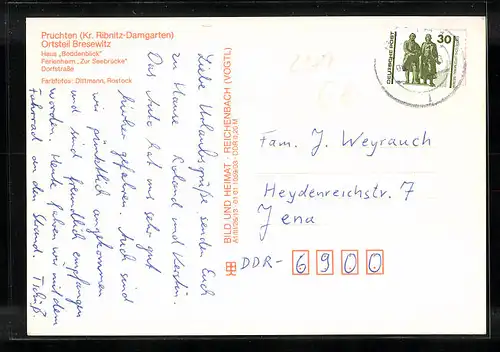 Pruchten (Kr. Ribnitz-Damgarten)
Ortsteil Bresewitz
Haus „Boddenblick"
Ferienheim „Zur Seebrücke"
Dorfstraße
Farbfotos: Dittmann, Rostock
Liebe Urlaubsgrüße senden Euch
zu Hause Roland und Kerstin.
Das Auto hat uns sehr gut
hierher gefahren. Auch sind
wir pünktlich angekommen
und sind freundlich empfangen
worden. Heute fahren wir mit dem
Fahrrad an den Strand. Tschüß.
BILD UND HEIMAT REICHENBACH (VOGTL)
DEUTSCHE POST
30
Fam. J. Weyrauch
Heydenreichstr. 7
Jena
DDR- 6900